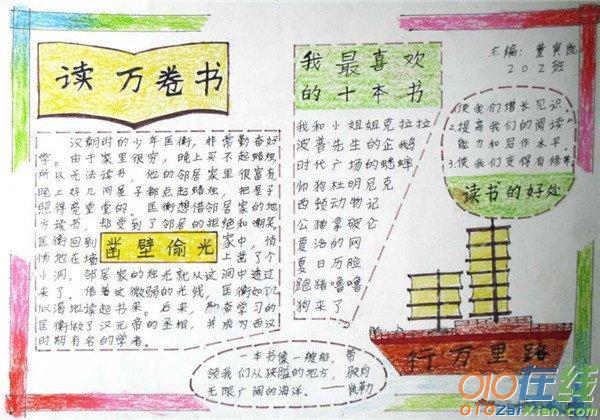 读万卷书
汉朝时的少年匡衡，非常勤奋好
学。由于家里很穷，晚上买不起蜡烛，
所以无法读书，他的邻居家里很富有
晚上好几间屋子都点起蜡烛，把屋子
照得亮堂堂的。匡衡想借邻居家的地
方读书，却受到了邻居的拒绝和嘲笑
匡衡回到
凿壁偷光
家中，悄
悄地在墙
上凿了个
小洞，邻居家的烛光就从这洞中透过
来了，借着这微弱的光线，匡衡如饥
似渴地读起书来。后来，勤奋学习的
匡衡做了汉元帝的丞相，并成为西汉
时期有名的学者。
我最喜欢
的十本书
我和小姐姐克拉拉
波普先生的企鹅
时代广场的蟋蟀
帅狗杜明尼克
西顿动物记
公猪拿破仑
夏洛的网
夏日历险
跑猪噜噜
狗来了
主编：董寅
202班
1.使我们增长见识
2.提高我们的阅读
能力和写作水平。
3.使我们变得有修养
读书的好处
行万里路
一本书像一艘船，带
领我们从狭隘的地方，驶向
无限广阔的海洋。——凯勒
010在线
010zaixian.com